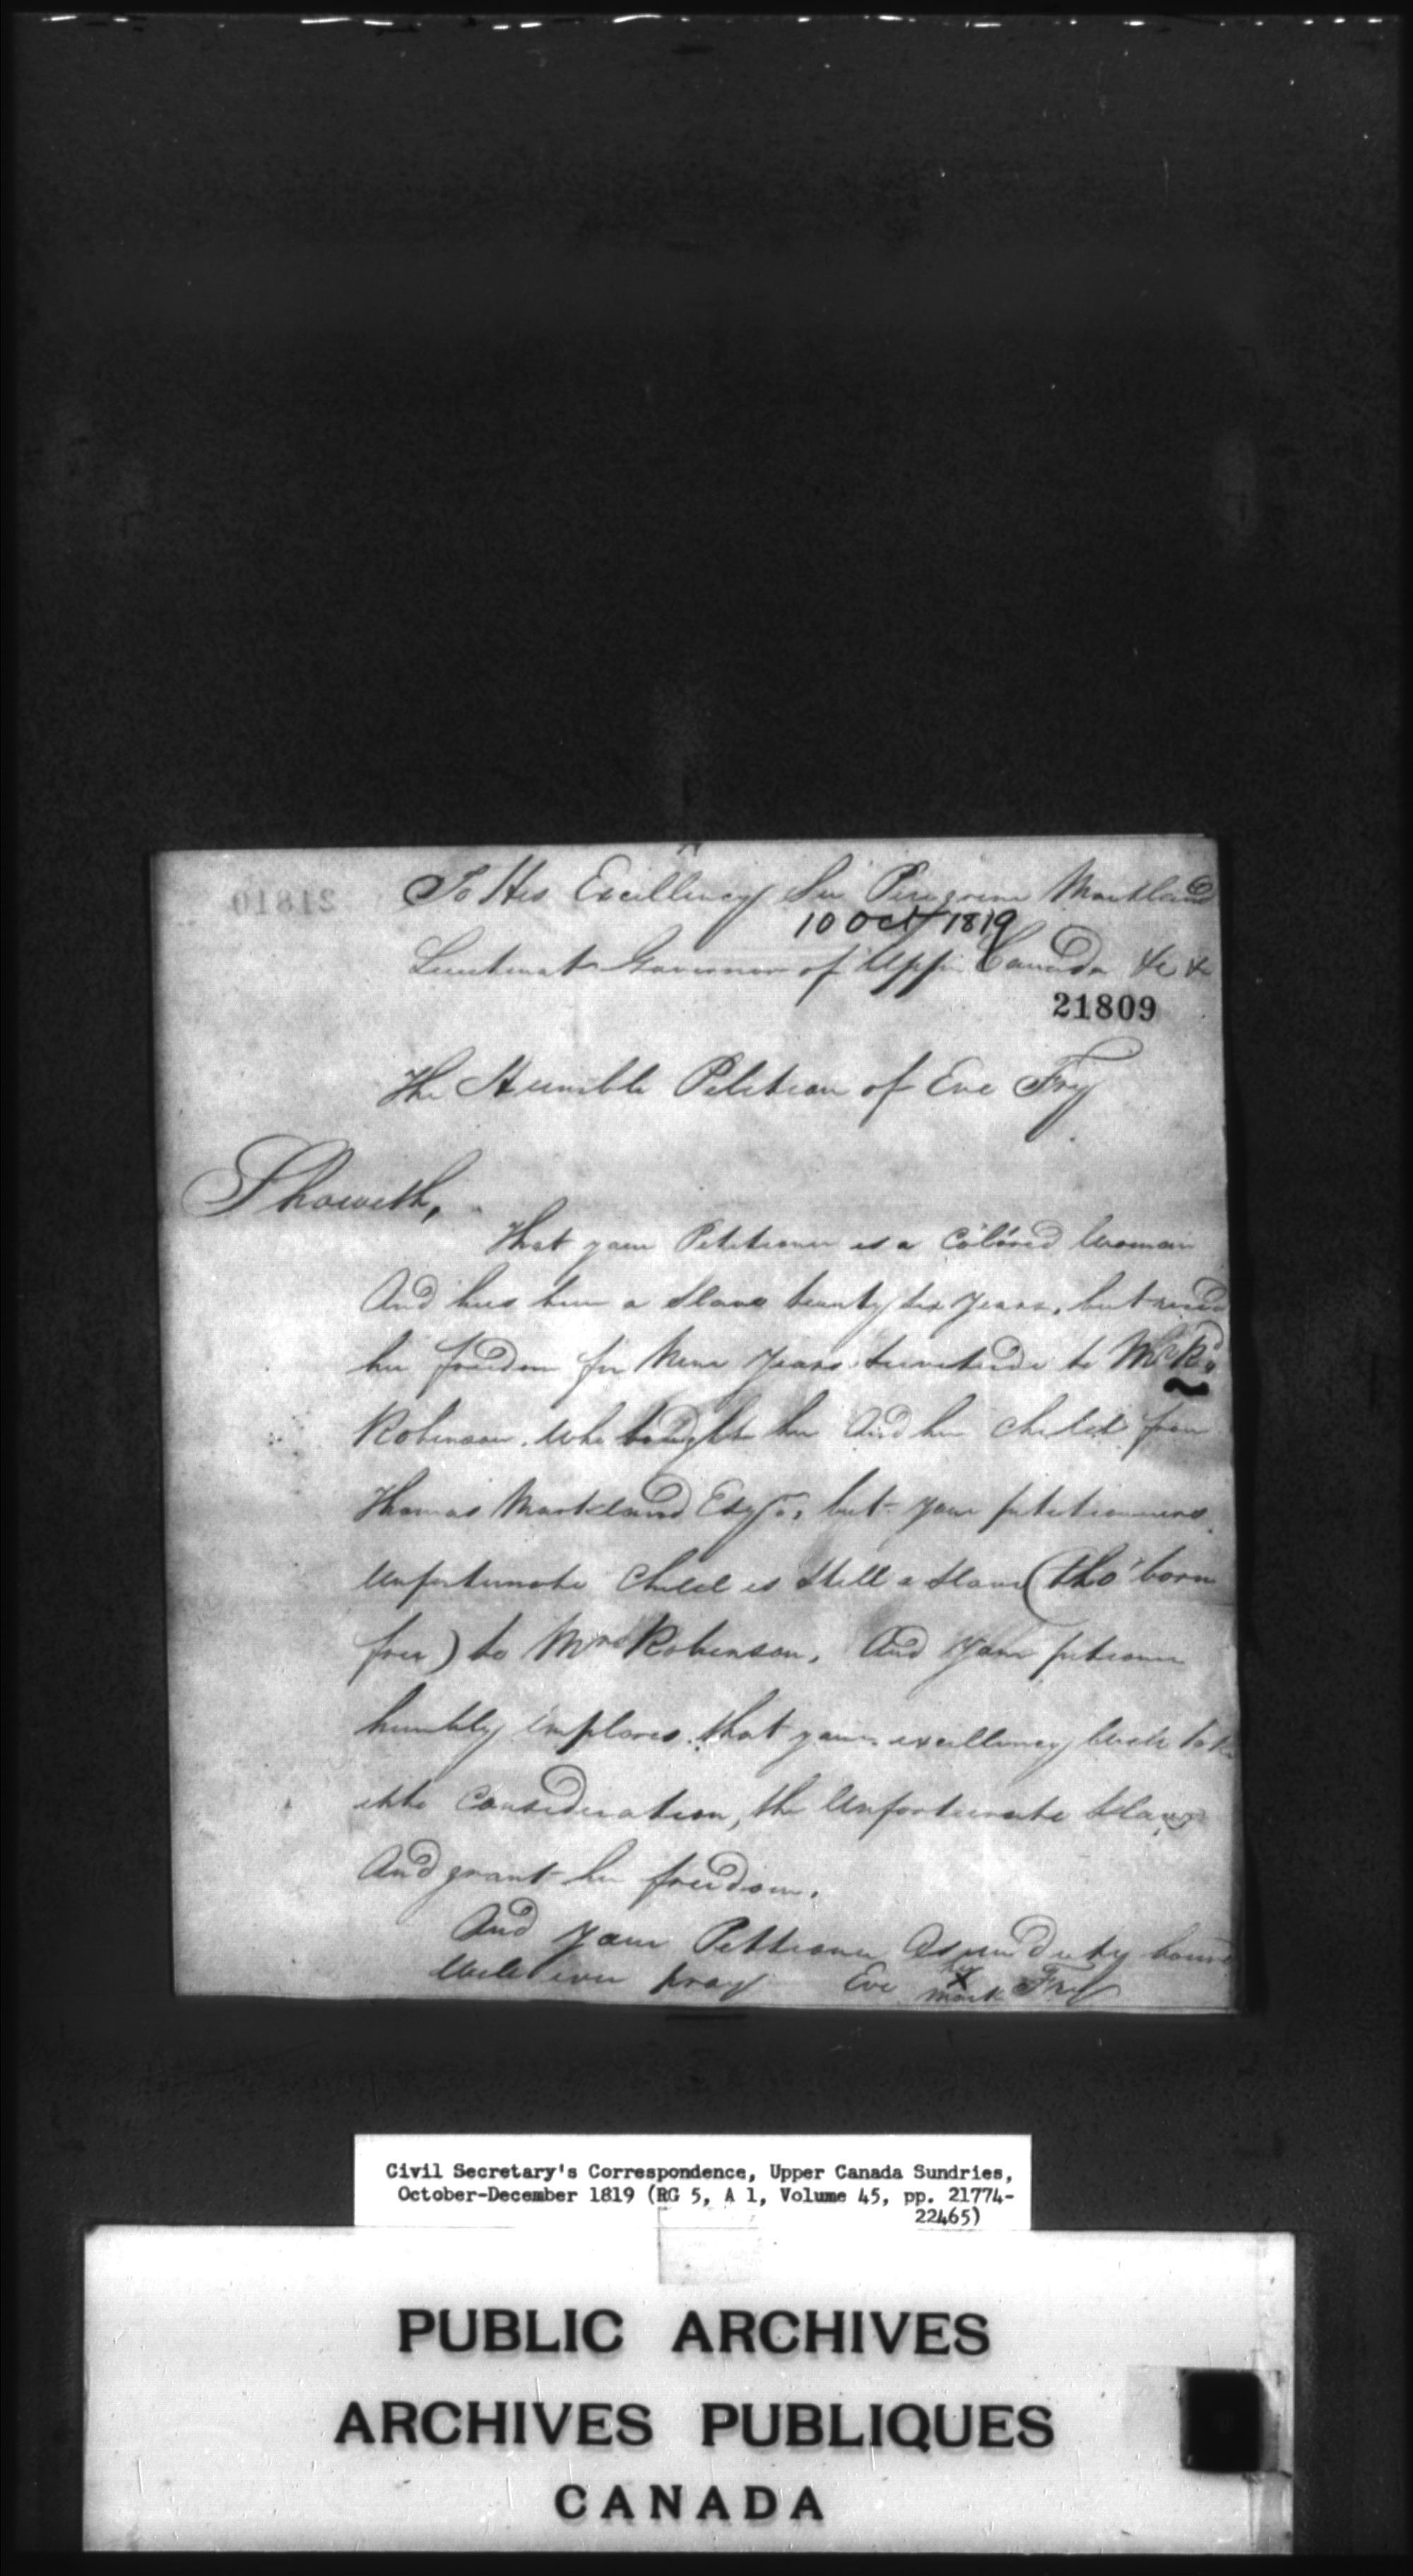 21810
To His Excellency Sir Peregrine Maitland
10 Oct 1819
Lieutenant Governor of Upper Canada &c &c
21809
The Humble Petition of Eve Fry
Showeth,
That your Petitioner is a Colored Woman
And has been a Slave twenty six years, but
her freedom for Nine years servitude to
Robinson. who bought her And her Child from
Thomas Markland Esqr, but your petitioners
Unfortunate Child is Still a Slave (tho' born
free) to Mrs Robinson. And your petioner
humbly implores that your excellency will take
into Consideration, the Unfortunate Slave
And grant her freedom.
And your Petitioner As in duty bound
Will ever pray Eve her X mark Fry
Civil Secretary's Correspondence, Upper Canada Sundries,
October-December 1819 (RG 5, A 1, Volume 45, pp. 21774-
22465)
PUBLIC ARCHIVES
ARCHIVES PUBLIQUES
CANADA